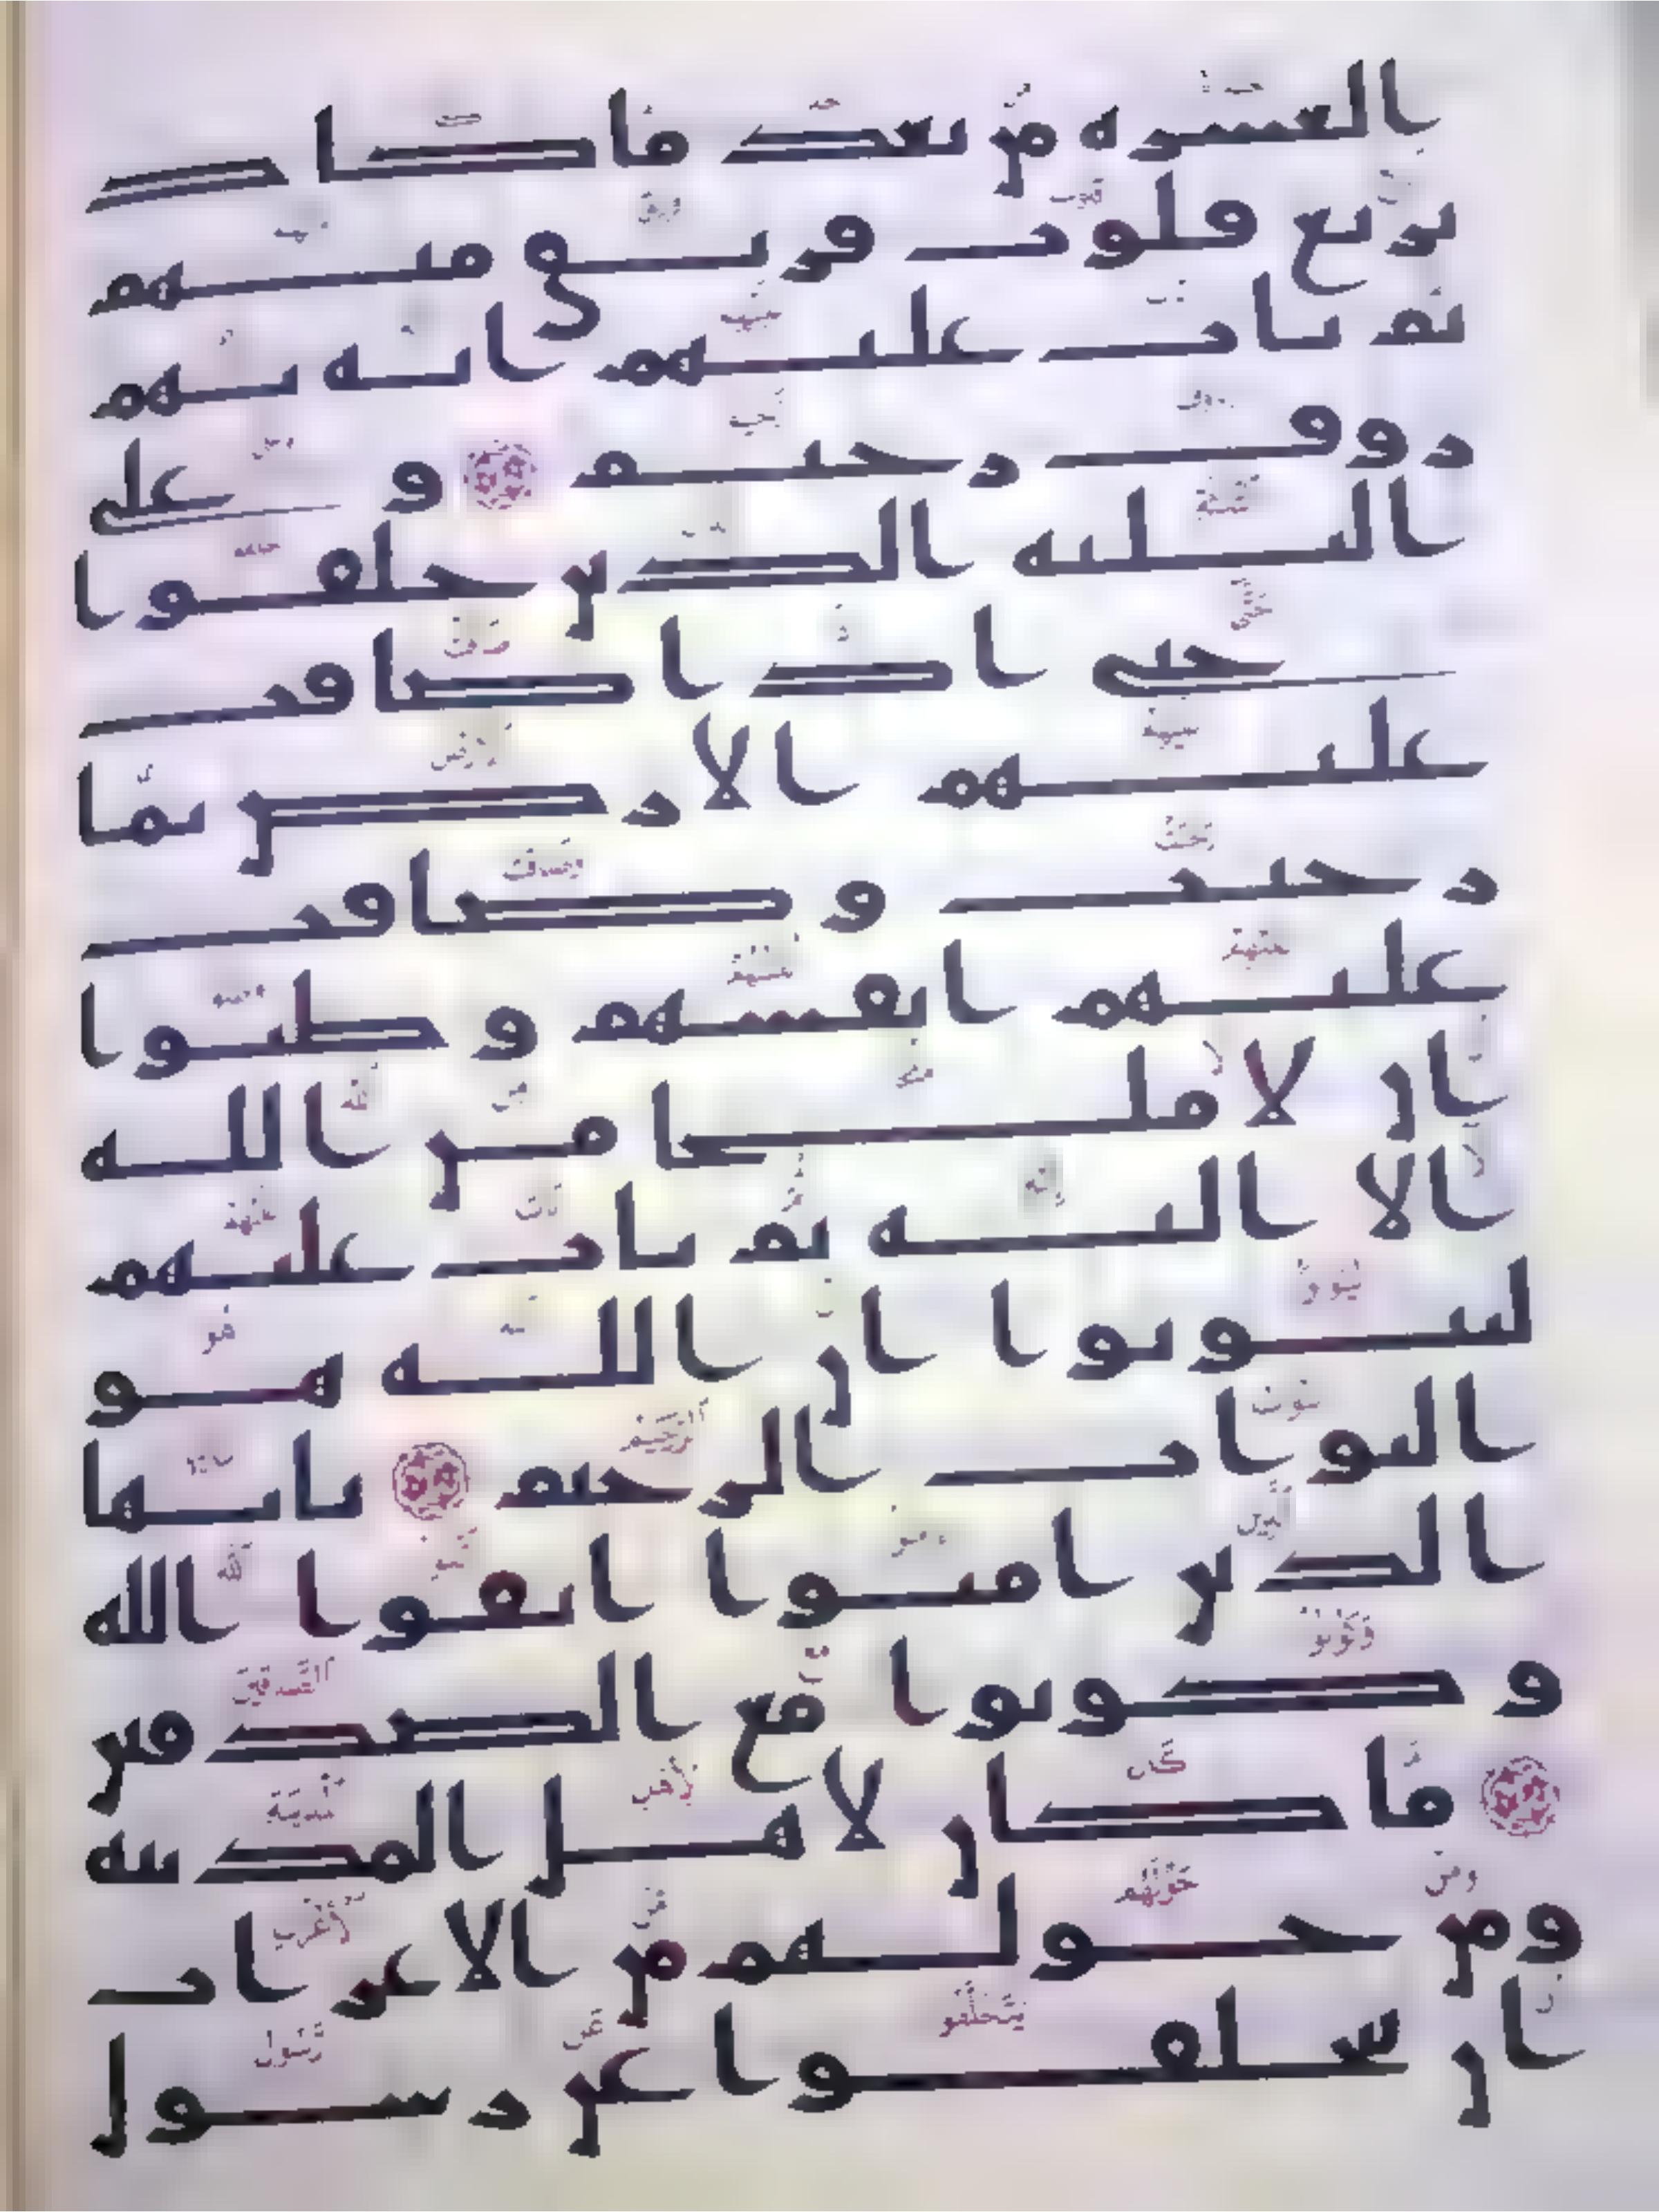 العسره من بعد ما كاد
يزيغ قلوب فريق منهم
ثم تاب عليهم انه بهم
روف رحيم و على
الثلثه الذين خلفوا
حتى اذا ضاقت
عليهم الارض بما
رحبت وضاقت
عليهم انفسهم وظنوا
ان لا ملجا من الله
الا اليه ثم تاب عليهم
ليتوبوا ان الله هو
التواب الرحيم يايها
الذين امنوا اتقوا الله
وكونوا مع الصدقين
ما كان لاهل المدينه
ومن حولهم من الاعراب
ان يتخلفوا عن رسول